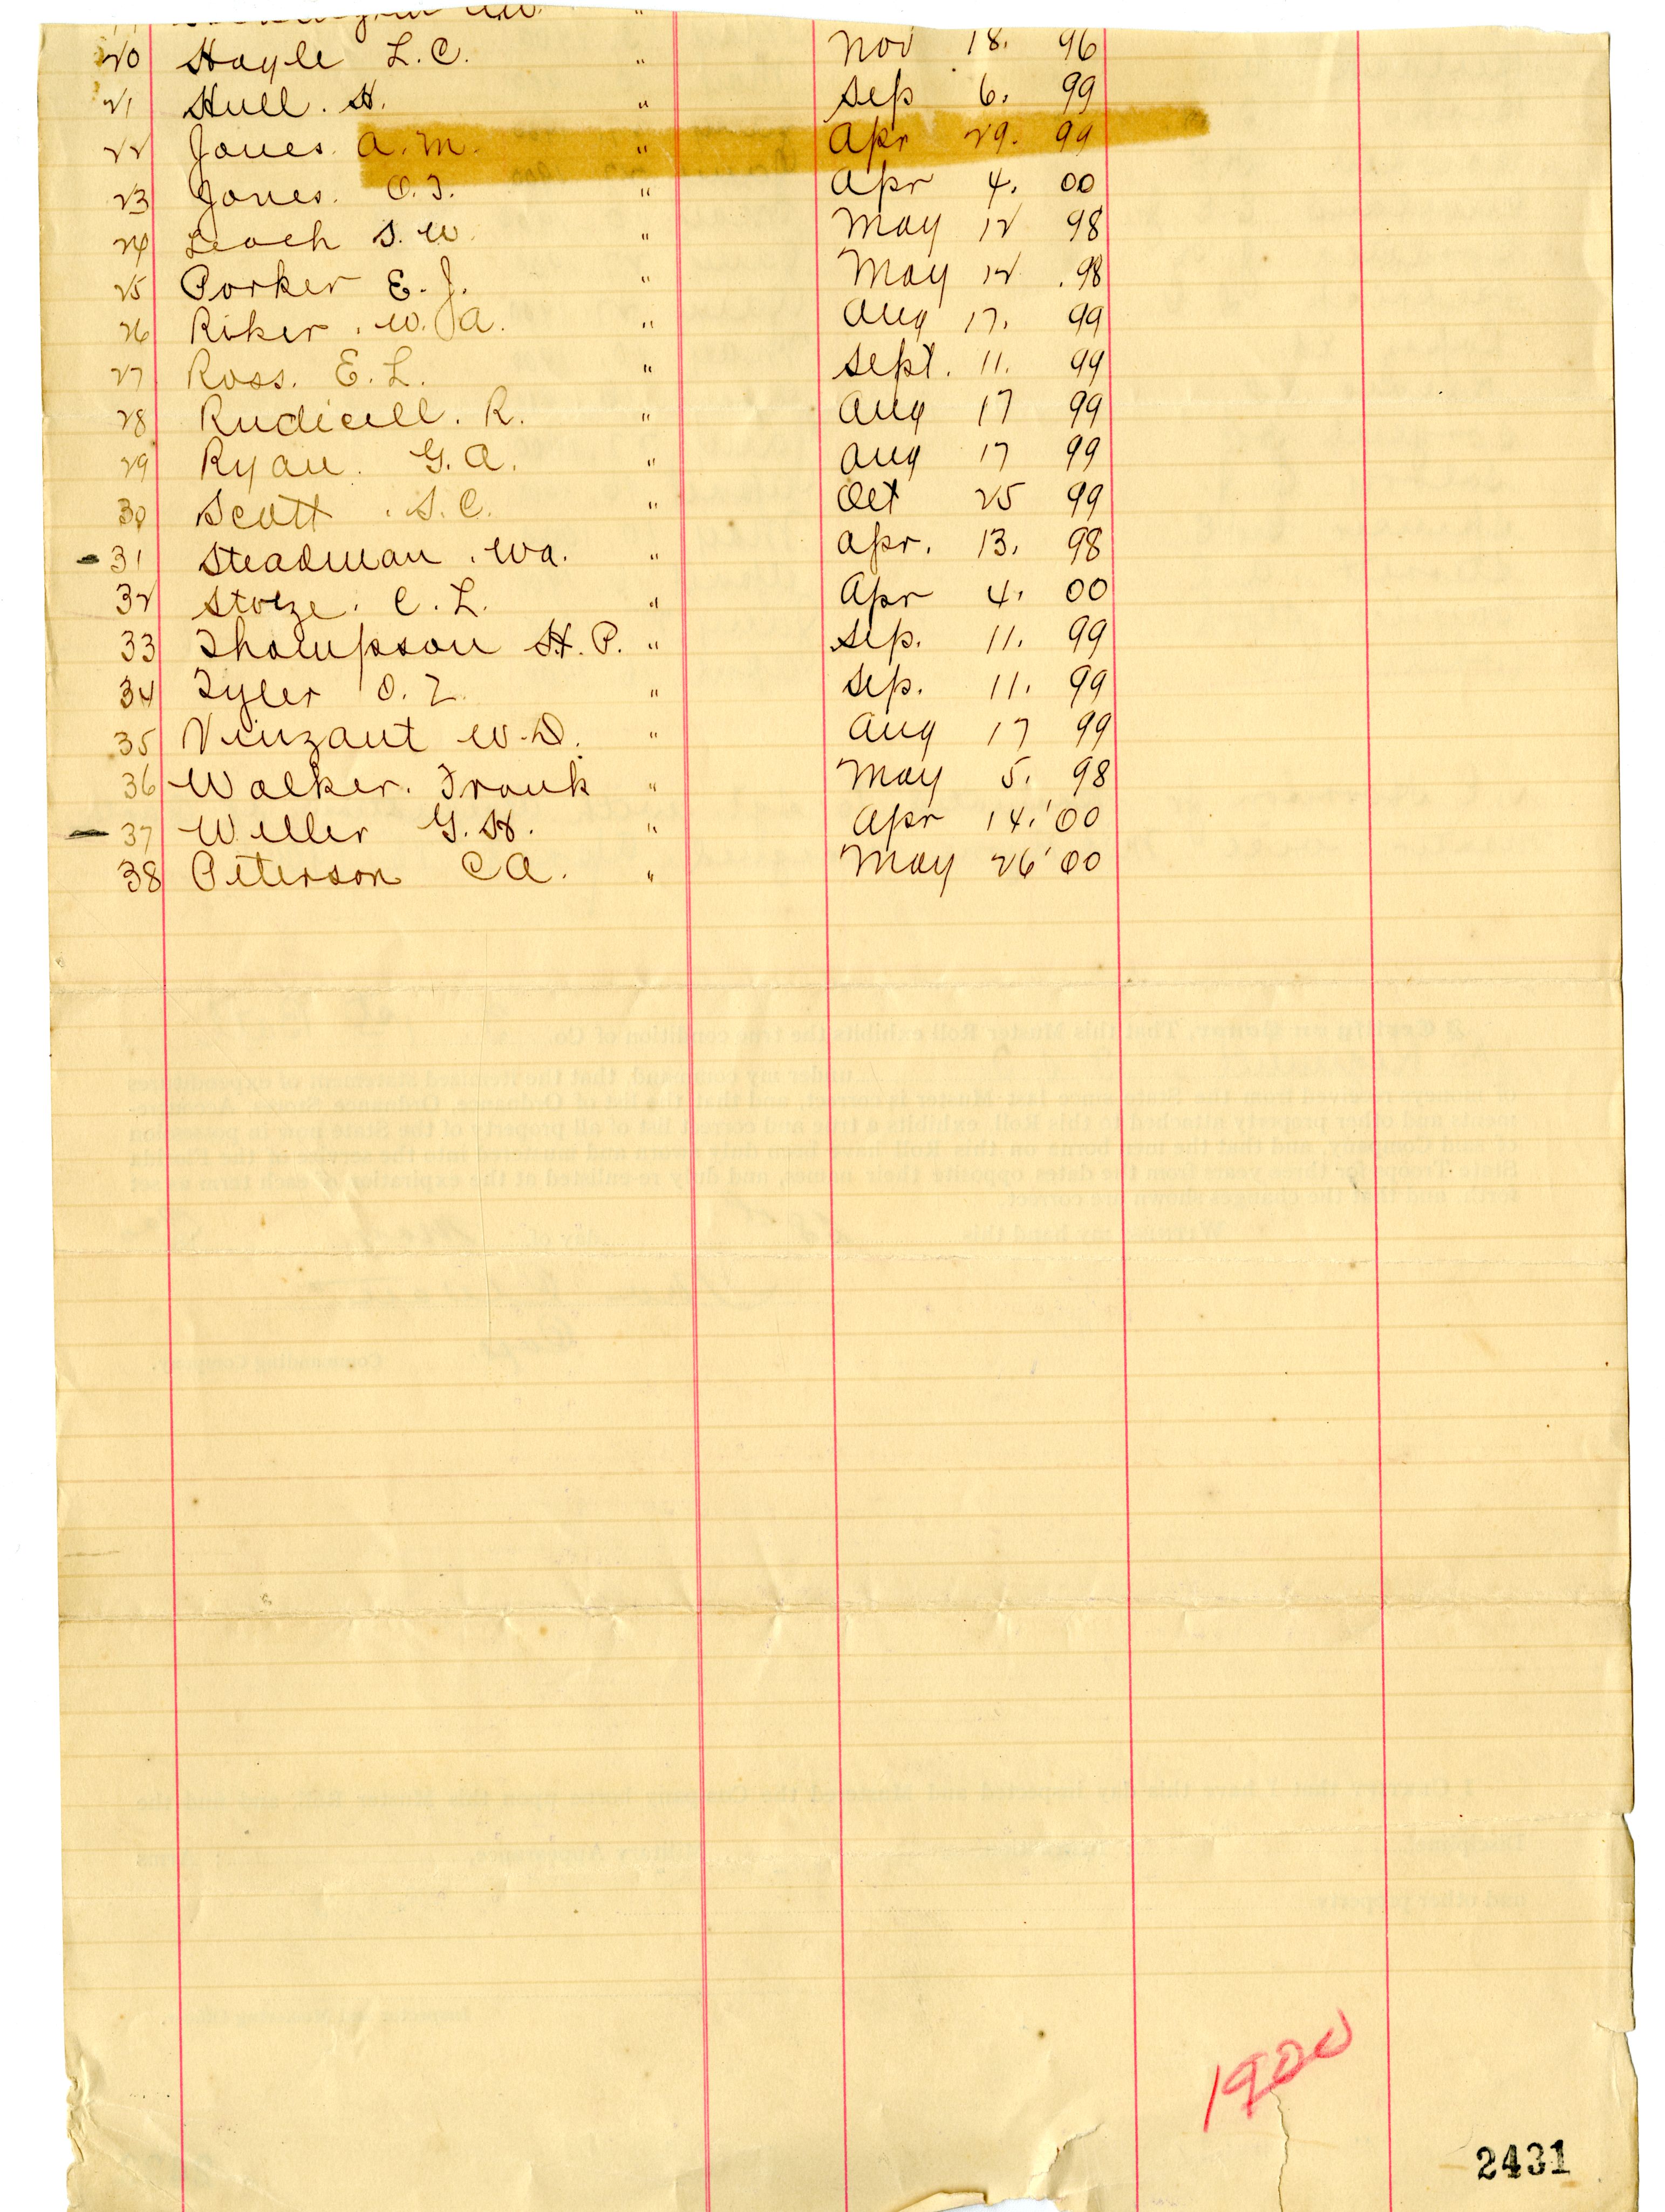 20 Hoyle L.C. " Nov 18. 96
21 Hull. H. " Sep 6. 99
22 Jones. A.M. " Apr 29. 99
23 Jones. O.J. " Apr 4. 00
24 Leach S.W. " May 12 98
25 Porker E.J. " May 12 .98
26 Riker. W.A. " Aug 17. 99
27 Ross. E.L. " Sept. 11. 99
28 Rudicill. R. " Aug 17 99
29 Ryan. G.A. " Aug 17 99
30 Scott. S.C. " Oct 25 99
31 Steadman. Wa. " Apr. 13. 98
32 Stolze. C.L. " Apr 4. 00
33 Thompson H.P. " Sep. 11. 99
34 Tyler O.Z. " Sep. 11. 99
35 Vinzant W.D. " Aug 17 99
36 Walker. Frank " May 5. 98
37 Willer G.H. " Apr 14.'00
38 Peterson C A. " May 26'00
1900
2431